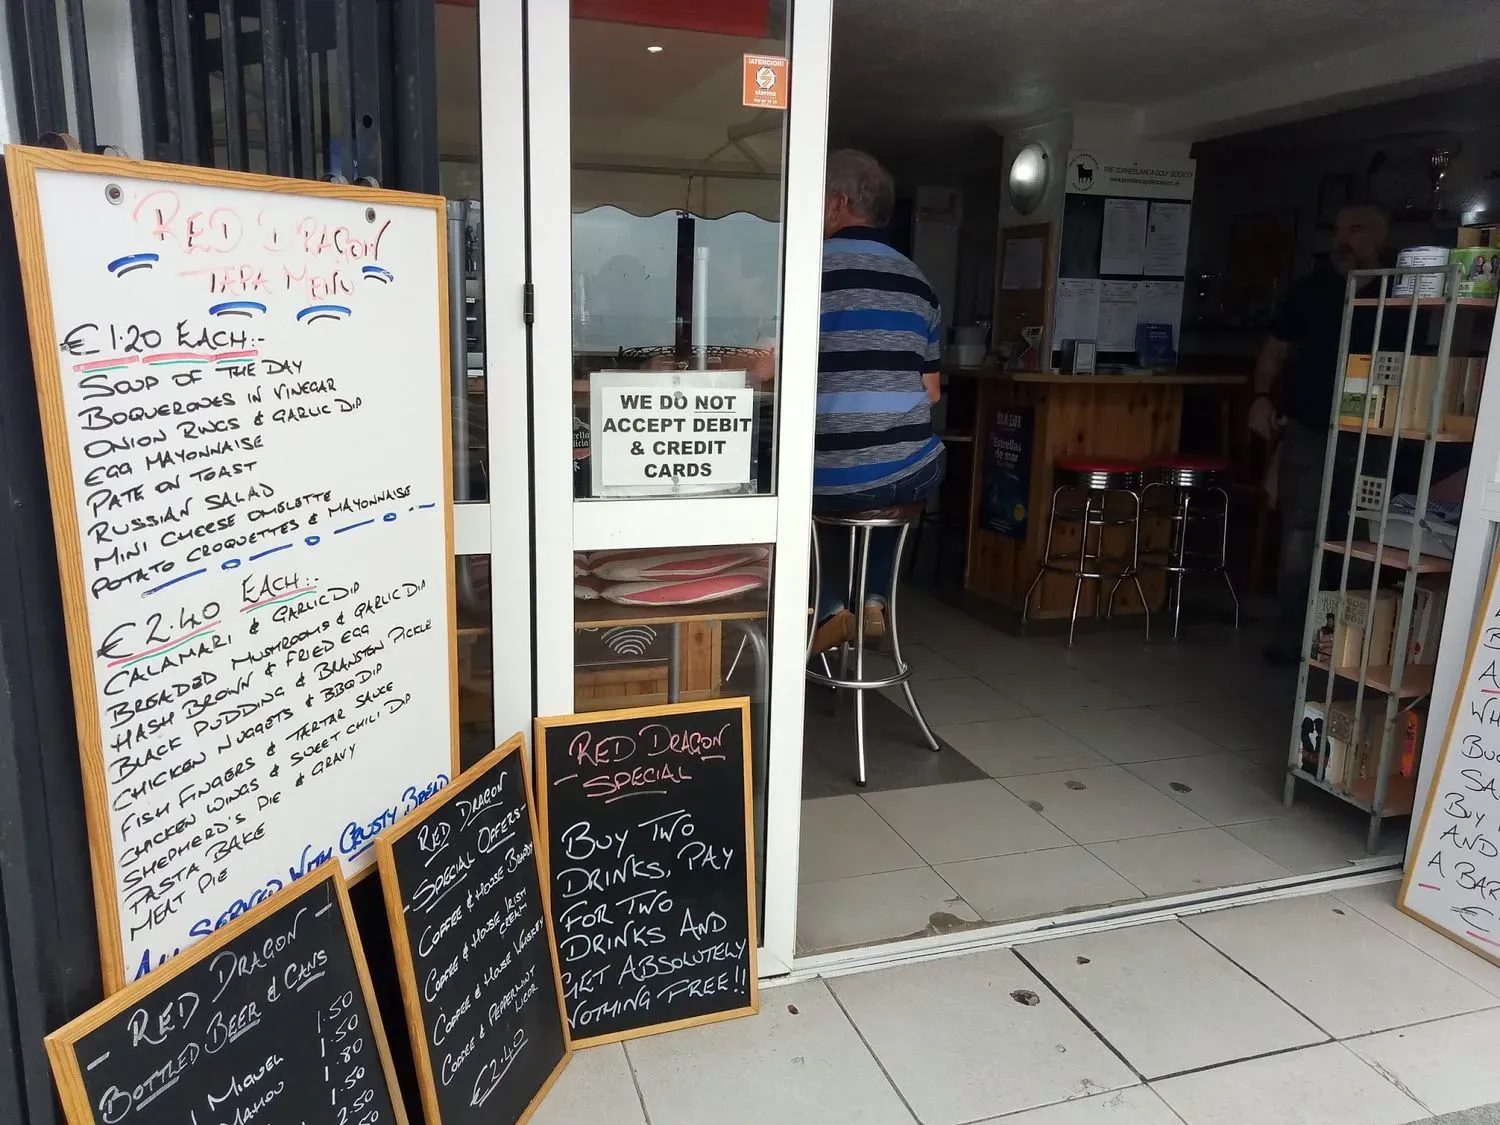 RED DRAGON
TAPA MENU
€1.20 EACH:-
SOUP OF THE DAY
BOQUERONES IN VINEGAR
ONION RINGS & GARLIC DIP
EGG MAYONNAISE
PATE ON TOAST
RUSSIAN SALAD
MINI CHEESE OMELETTE
POTATO CROQUETTES & MAYONNAISE
€2.40 EACH:-
CALAMARI & GARLIC DIP
BREADED MUSHROOMS & GARLIC DIP
HASH BROWN & FRIED EGG
BLACK PUDDING & BRANSTON PICKLE
CHICKEN NUGGETS & BBQ DIP
FISH FINGERS & TARTAR SAUCE
CHICKEN WINGS & SWEET CHILI DIP
SHEPHERD'S PIE & GRAVY
PASTA BAKE
MEAT PIE
ALL SERVED WITH CRUSTY BREAD
- RED DRAGON -
BOTTLED BEER & CANS
MIGUEL 1.50
MAHOU 1.50
1.80
1.50
2.50
RED DRAGON
- SPECIAL OFFERS -
COFFEE & HOUSE BRANDY
COFFEE & HOUSE IRISH
CREAM
COFFEE & HOUSE WHISKEY
COFFEE & PEPPERMINT
LICOR
€2.40
RED DRAGON
- SPECIAL
BUY TWO
DRINKS, PAY
FOR TWO
DRINKS AND
GET ABSOLUTELY
NOTHING FREE!!
¡ATENCION!
alarma
WE DO NOT
ACCEPT DEBIT
& CREDIT
CARDS
THE TORREBLANCA GOLF SOCIETY
Estrellas
de mar
A
WH
BU
SA
BUY
AND
A BAR
€